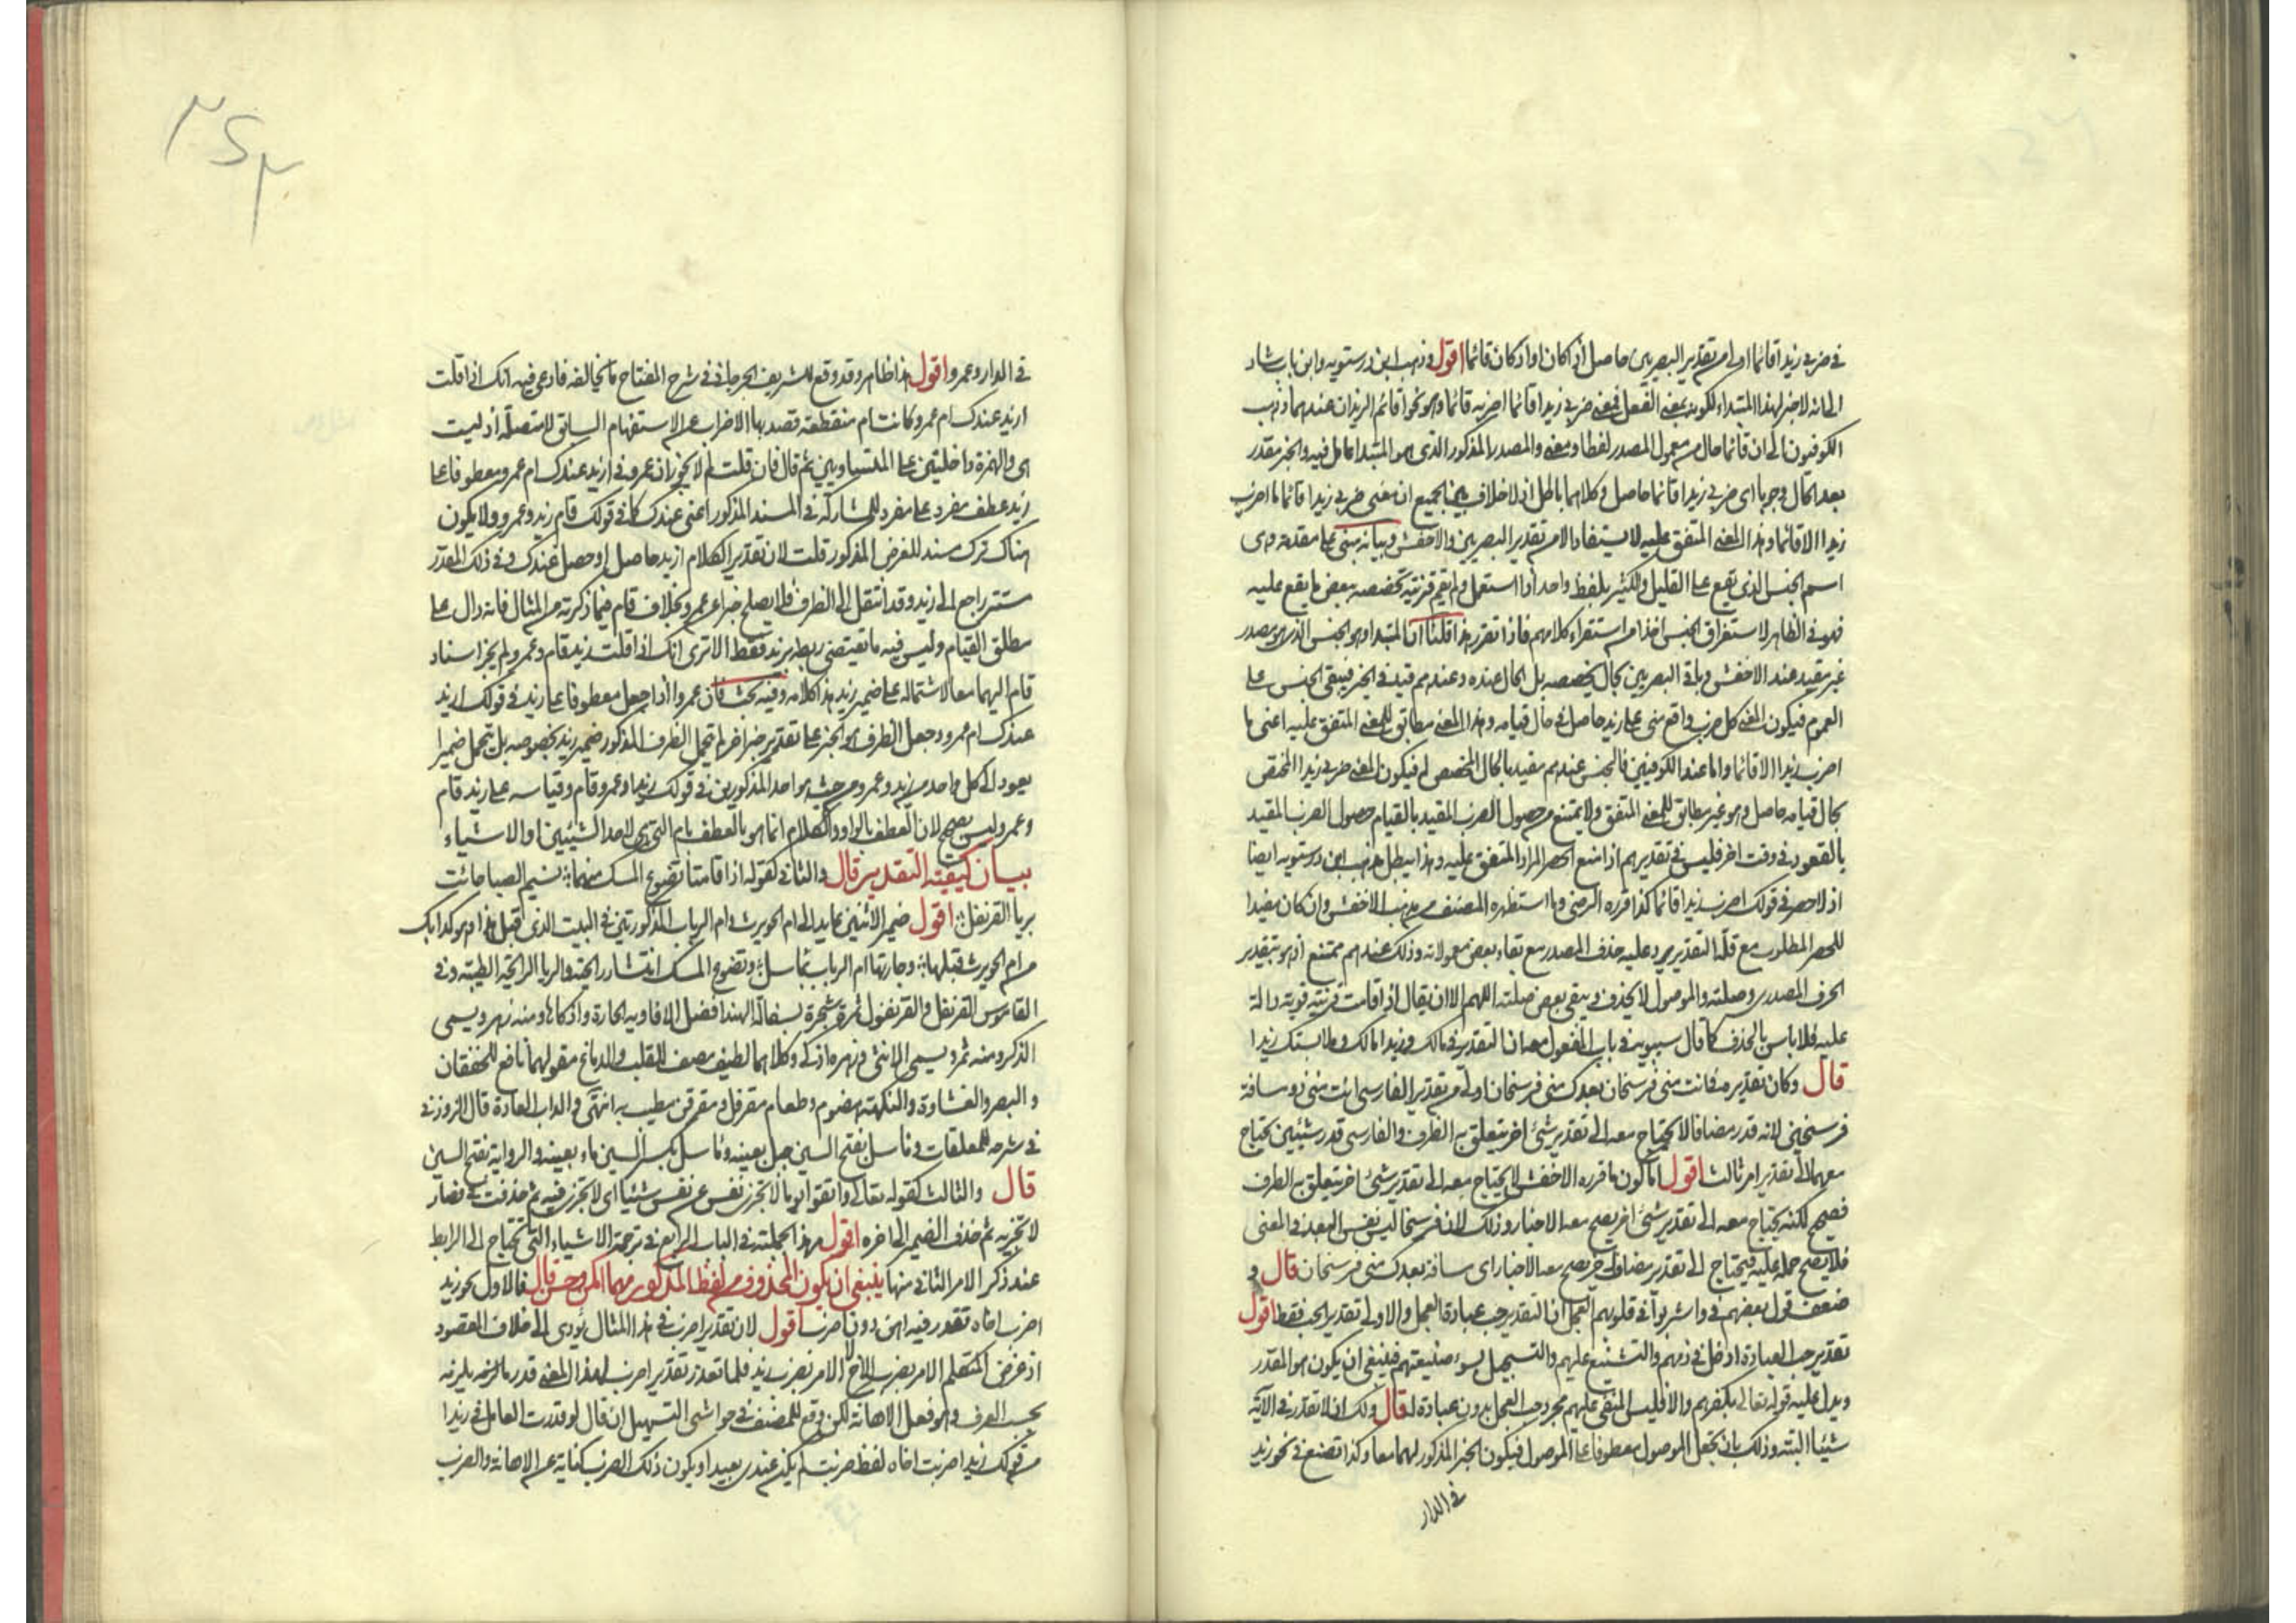 في ضربي زيدا قائما اولى من تقدير البصريين حاصل اذ كان او اذا كان قائما اقول وذهب ابن درستويه وابن بابشاد
الى انه لا خبر لهذا المبتداء لكونه بمعنى الفعل فمعنى ضربي زيدا قائما اضربه قائما وهو نحو اقائم الزيدان عندهما وذهب
الكوفيون الى ان قائما حال من معمول المصدر لفظا ومعنى والمصدر المذكور الذي هو المبتدا عامل فيه والخبر مقدر
بعد الحال وجوبا اى ضربي زيدا قائما حاصل وكلاهما باطل اذ لا خلاف بين الجميع ان معنى ضربي زيدا قائما ما اضرب
زيدا الا قائما وهذا المعنى المتفق عليه لا يستفاد الا من تقدير البصريين والاخفش وبيانه مبنى على مقدمة وهى
اسم الجنس الذي يقع على القليل والكثير بلفظ واحد اذا استعمل ولم يقم قرينة تخصصه ببعض ما يقع عليه
فهو في الظاهر لاستغراق الجنس اخذا من استقراء كلامهم فاذا تقرر هذا قلنا ان المبتدا وهو الجنس الذي هو مصدر
غير مقيد عند الاخفش وباقى البصريين بحال يخصصه بل الحال عنده وعندهم قيد في الخبر فيبقى الجنس على
العموم فيكون المعنى كل ضرب واقع منى على زيد حاصل في حال قيامه وهذا المعنى مطابق للمعنى المتفق عليه اعنى ما
اضرب زيدا الا قائما واما عند الكوفيين فالجنس عندهم مقيد بالحال المخصص له فيكون المعنى ضربي زيدا المختص
بحال قيامه حاصل وهو غير مطابق للمعنى المتفق ولا يمتنع من حصول الضرب المقيد بالقيام حصول الضرب المقيد
بالقعود في وقت اخر فليس في تقديرهم اذا منع الحصر المراد المتفق عليه وهذا يبطل مذهب ابن درستويه ايضا
اذ لا حصر في قولك اضرب زيدا قائما كذا قرره الرضى وما استظهره المصنف من مذهب الاخفش وان كان مفيدا
للحصر المطلوب مع قلة التقدير يرد عليه حذف المصدر مع بقاء بعض معمولاته وذلك عندهم ممتنع اذ هو بتقدير
الحرف المصدرى وصلته والموصول لا يحذف ويبقى بعض صلته اللهم الا ان يقال اذا قامت قرينة قوية دالة
عليه فلا باس بالحذف كما قال سيبويه في باب المفعول معه ان التقدير في مالك وزيدا مالك وملابستك زيدا
قال وكان تقديره في انت منى فرسخان بعدك منى فرسخان اولى من تقدير الفارسى انت منى ذو مسافة
فرسخين لانه قدر مضافا لا يحتاج معه الى تقدير شئ اخر يتعلق به الظرف والفارسى قدر شيئين يحتاج
معهما الى تقدير امر ثالث اقول اما كون ما قرره الاخفش لا يحتاج معه الى تقدير شئ اخر يتعلق به الظرف
فصحيح لكنه يحتاج معه الى تقدير شئ اخر يصح معه الاخبار وذلك لان فرسخا ليس نفس البعد في المعنى
فلا يصح حمله عليه فيحتاج الى تقدير مضاف اخر يصح معه الاخبار اى مسافة بعدك منى فرسخان قال و
ضعف قول بعضهم في واشربوا في قلوبهم العجل ان التقدير حب عبادة العجل والاولى تقدير الحب فقط اقول
تقدير حب العبادة ادخل في ذمهم والتشنيع عليهم والتسجيل بسوء صنيعتهم فينبغى ان يكون هو المقدر
ويدل عليه قوله تعالى بكفرهم والا فليس المنقى عليهم مجرد حب العجل بدون عبادة له قال ولك ان لا تقدر في الآية
شيئا البتة وذلك بان تجعل الموصول معطوفا على الموصول فيكون الخبر المذكور لهما معا وكذا تصنع في نحو زيد
في الدار
في الدار وعمرو اقول هذا ظاهر وقد وقع للشريف الجرجانى في شرح المفتاح ما يخالفه فادعى فيه انك اذا قلت
ازيد عندك ام عمرو كانت ام منقطعة قصد بها الاضراب عن الاستفهام السابق لا متصلة اذ ليست
هى والهمزة داخلتين على المتساويين ثم قال فان قلت لم لا يجوز ان عمرو في ازيد عندك ام عمرو معطوفا على
زيد عطف مفرد على مفرد للمشاركة في المسند المذكور اعنى عندك كما في قولك قام زيد وعمرو ولا يكون
هناك ترك مسند للغرض المذكور قلت لان تقدير الكلام ازيد حاصل او حصل عندك وفي ذلك المقدر
مستتر راجع الى زيد وقد انتقل الى الظرف فلا يصلح خبرا عن عمرو بخلاف قام فيما ذكرته من المثال فانه دال على
مطلق القيام وليس فيه ما يقتضى ربطه بزيد فقط الا ترى انك اذا قلت زيد قام وعمرو لم يجز اسناد
قام اليهما معا لاشتماله على ضمير زيد هذا كلامه وفيه بحث فان عمروا اذا جعل معطوفا على زيد في قولك ازيد
عندك ام عمرو وجعل الظرف هو الخبر على تقدير خبر اخر لم يتحمل الظرف المذكور ضمير زيد بخصوصه بل يتحمل ضميرا
يعود الى كل واحد من زيد وعمرو من حيث هو احد المذكورين في قولك زيد او عمرو قام وقياسه على زيد قام
وعمرو ليس بصحيح لان العطف بالواو والكلام انما هو بالعطف بام التى هى لاحد الشيئين او الاشياء
بيان كيفية التقدير قال والثانى كقوله اذا قامتا تضوع المسك منهما نسيم الصبا جائت
بريا القرنفل اقول ضمير الاثنين عايد الى ام الحويرث وام الرباب المذكورتين في البيت الذي قبل هذا وهو كدابك
من ام الحويرث قبلها وجارتها ام الرباب بماسل وتضوع المسك انتشار رايحته والريا الرايحة الطيبة وفي
القاموس القرنفل والقرنفول ثمرة شجرة بسفالة الهند افضل الافاويه الحارة واذكاها ومنه زهر ويسمى
الذكر ومنه ثمر ويسمى الانثى وزهره اذكى وكلاهما لطيف مصف للقلب والدماغ مقو لهما نافع للخفقان
و البصر والغشاوة والنكهة هضوم وطعام مقرفل ومقرفن مطيب به انتهى والداب العادة قال الزوزنى
في شرحه للمعلقات وماسل بفتح السين جبل بعينه وماسل بكسر السين ماء بعينه والرواية بفتح السين
قال والثالث كقوله تعالى واتقوا يوما لا تجزى نفس عن نفس شيئا اى لا تجزى فيه ثم حذفت في فصار
لا تجزيه ثم حذف الضمير الى اخره اقول مر هذا بجملته في الباب الرابع في ترجمة الاشياء التى تحتاج الى الرابط
عند ذكر الامر الثانى منها ينبغى ان يكون المحذوف من لفظ المذكور مهما امكن وحسن قال فالاول نحو زيد
اضرب اخاه تقدر فيه اهن دون اضرب اقول لان تقدير اضرب في هذا المثال يؤدى الى خلاف المقصود
اذ غرض المتكلم الامر بضرب الاخ لا الامر بضرب زيد فلما تعذر تقدير اضرب لهذا المعنى قدر ما يلزمه
بحسب العرف وهو فعل الاهانة لكن وقع للمصنف في حواشى التسهيل ان قال لو قدرت العامل في زيدا
من قولك زيدا ضربت اخاه لفظ ضربت لم يكن عندى بعيدا ويكون ذلك الضرب كناية عن الاهانة والضرب